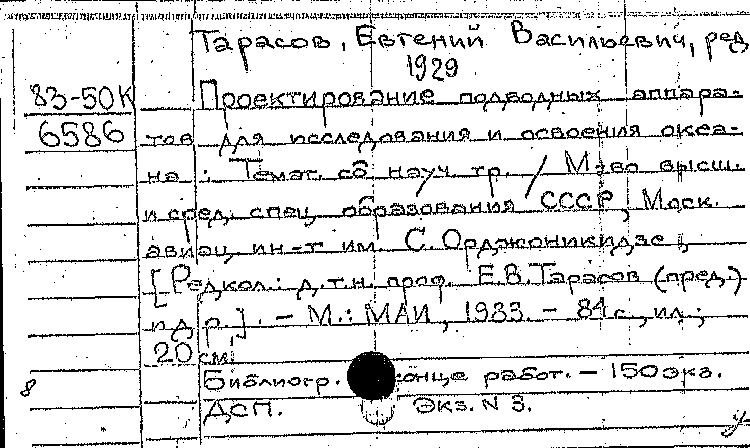 Тарасов, Евгений Васильевич, ред
1929
83-50К Проектирование подводных аппара-
6586 тов для исследования и освоения океа-
на : Темат. сб науч. тр. / М-во высш.
и сред. спец. образования СССР, Моск.
авиац. ин-т им. С. Орджоникидзе ;
[Редкол.: д.т.н. проф. Е.В. Тарасов (пред.)
и др.]. - М.: МАИ, 1983. - 84 с., ил.;
20 см.
Библиогр. конце работ. - 150 экз.
8 ДСП. Экз. N 3.